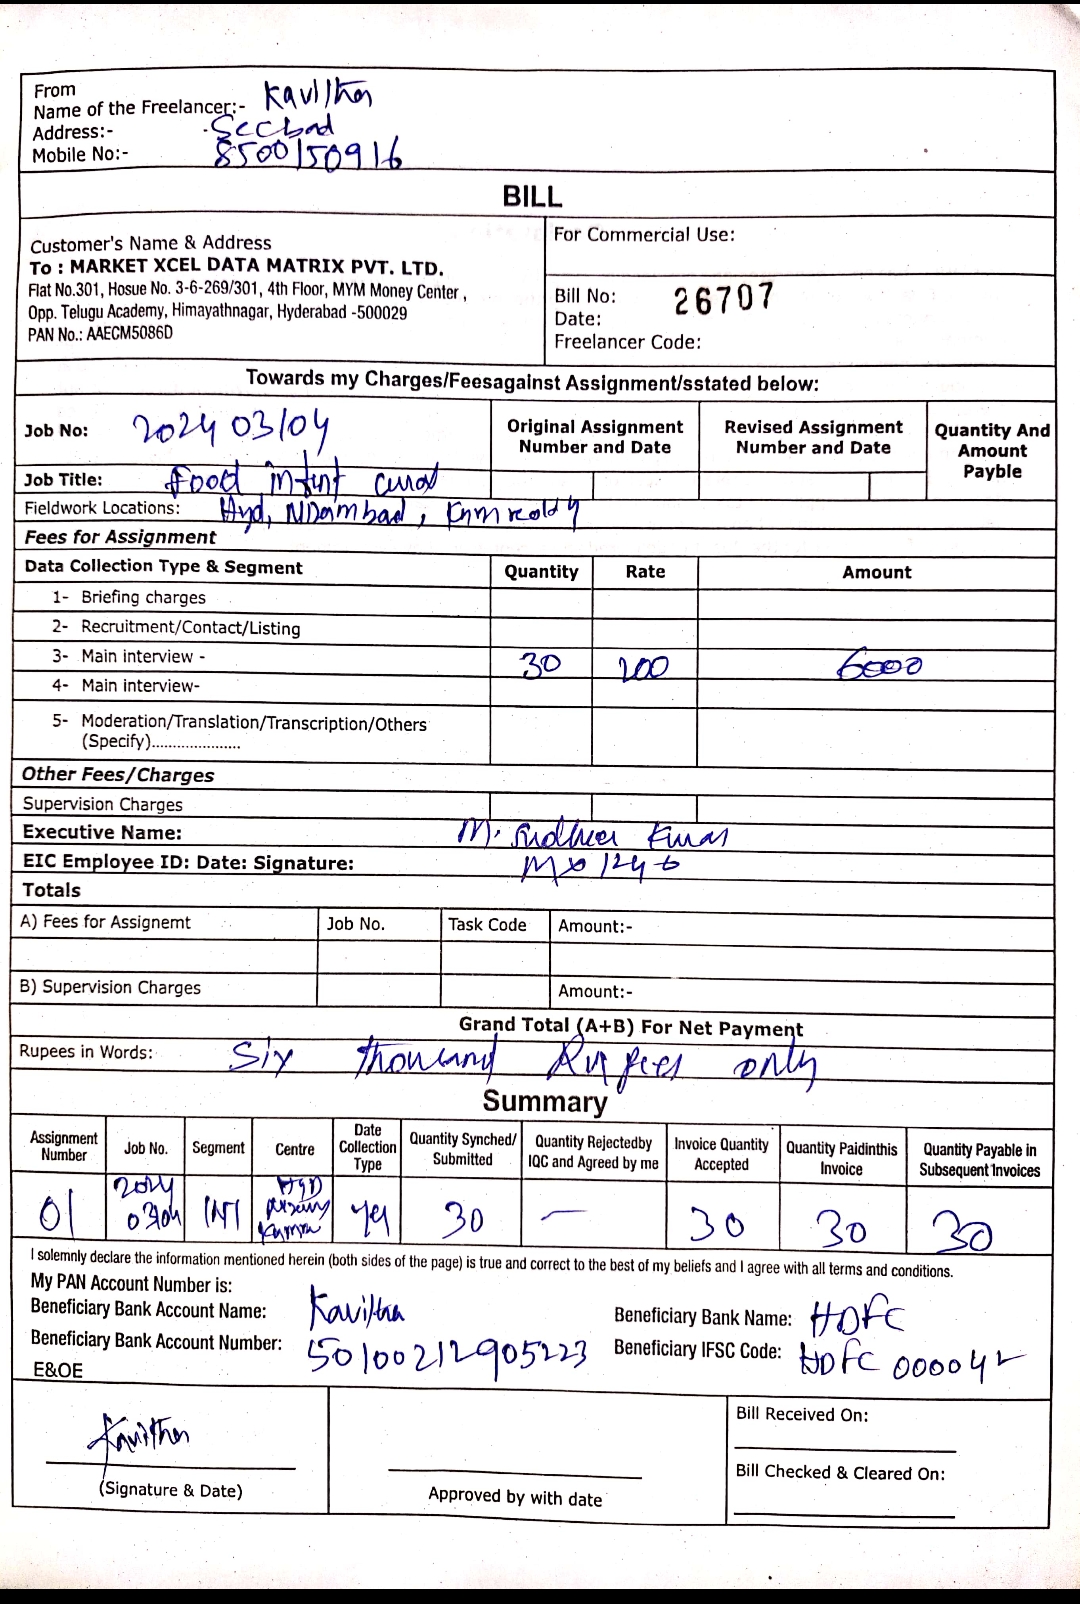 From
Name of the Freelancer:- Kavitha
Address:- Secbad
Mobile No:- 8500150916
BILL
Customer's Name & Address
To : MARKET XCEL DATA MATRIX PVT. LTD.
Flat No.301, Hosue No. 3-6-269/301, 4th Floor, MYM Money Center ,
Opp. Telugu Academy, Himayathnagar, Hyderabad -500029
PAN No.: AAECM5086D
For Commercial Use:
Bill No: 26707
Date:
Freelancer Code:
Towards my Charges/Feesagainst Assignment/sstated below:
Job No: 2024 03/04
Original Assignment Number and Date
Revised Assignment Number and Date
Quantity And Amount Payble
Job Title: Food
Fieldwork Locations: Hyd,
Fees for Assignment
Data Collection Type & Segment Quantity Rate Amount
1- Briefing charges
2- Recruitment/Contact/Listing
3- Main interview - 30 200 6000
4- Main interview-
5- Moderation/Translation/Transcription/Others
(Specify).....................
Other Fees/Charges
Supervision Charges
Executive Name: M. Sudheer Kumar
EIC Employee ID: Date: Signature:
Totals
A) Fees for Assignemt Job No. Task Code Amount:-
B) Supervision Charges Amount:-
Grand Total (A+B) For Net Payment
Rupees in Words: Six thousand Rupees only
Summary
Assignment Number Job No. Segment Centre Date Collection Type Quantity Synched/ Submitted Quantity Rejectedby IQC and Agreed by me Invoice Quantity Accepted Quantity Paidinthis Invoice Quantity Payable in Subsequent Invoices
01 2024 03/04 INT HYD Yes 30 — 30 30 30
I solemnly declare the information mentioned herein (both sides of the page) is true and correct to the best of my beliefs and I agree with all terms and conditions.
My PAN Account Number is:
Beneficiary Bank Account Name: Kavitha
Beneficiary Bank Name: HDFC
Beneficiary Bank Account Number: 50100212905223
Beneficiary IFSC Code: HDFC 000042
E&OE
Kavitha
(Signature & Date)
Approved by with date
Bill Received On:
Bill Checked & Cleared On: